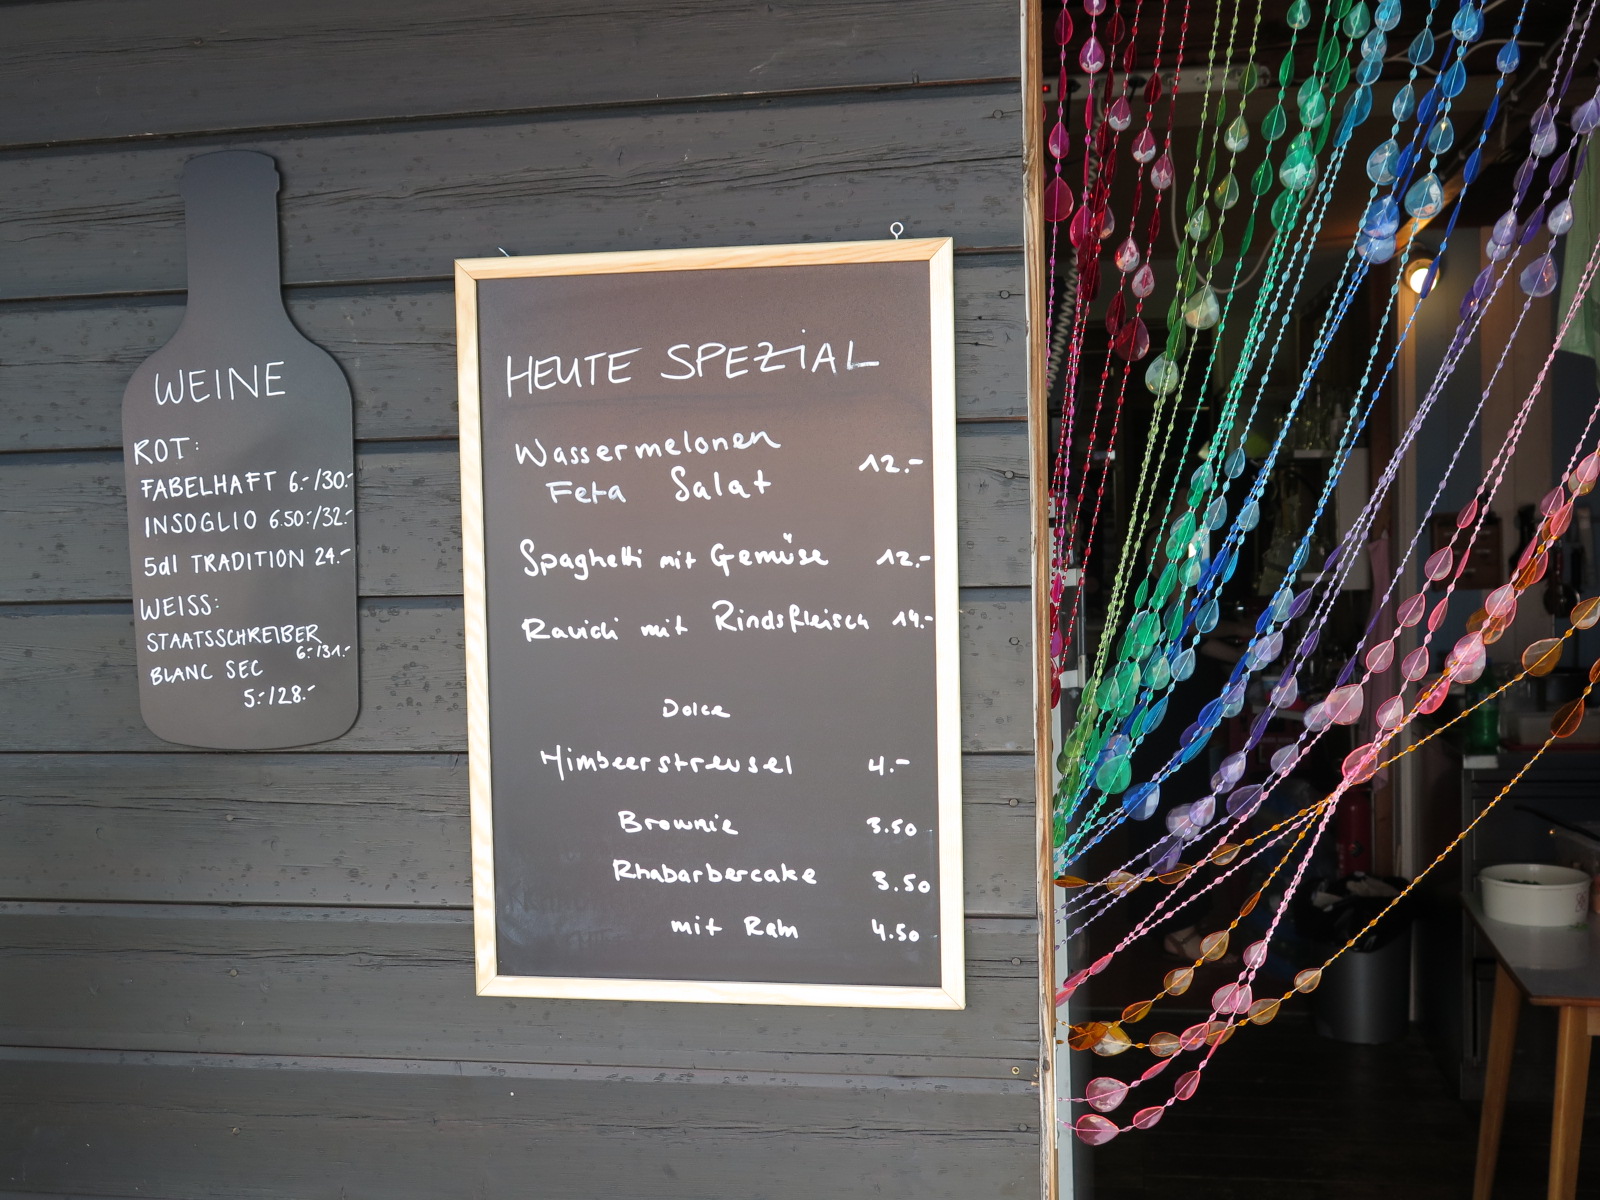 WEINE
ROT:
FABELHAFT 6.-/30.-
INSOGLIO 6.50.-/32.-
5dl TRADITION 24.-
WEISS:
STAATSSCHREIBER
6.-/31.-
BLANC SEC
5.-/28.-
HEUTE SPEZIAL
Wassermelonen
Feta Salat 12.-
Spaghetti mit Gemüse 12.-
Ravioli mit Rindsfleisch 14.-
Dolce
Himbeerstreusel 4.-
Brownie 3.50
Rhabarbercake 3.50
mit Rahm 4.50